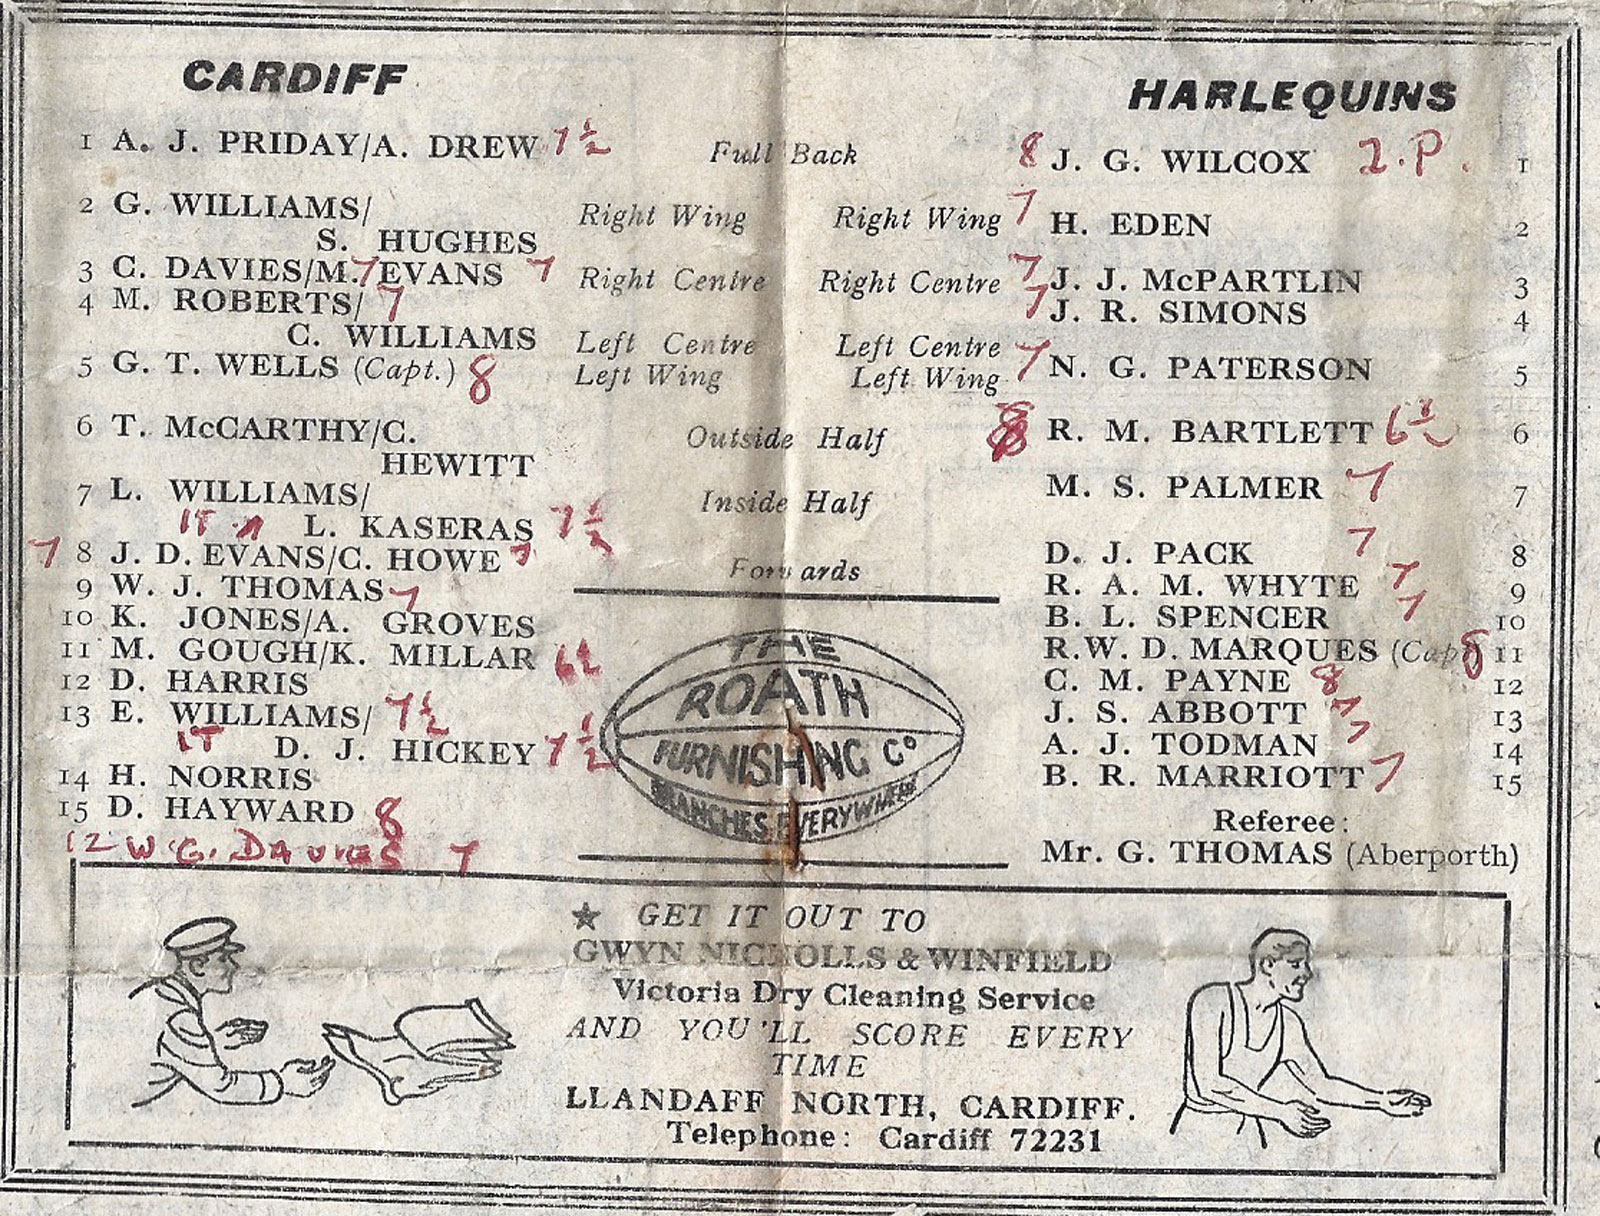 CARDIFF
HARLEQUINS
1 A. J. PRIDAY/A. DREW 7½ Full Back 8 J. G. WILCOX 2.P. 1
2 G. WILLIAMS/
S. HUGHES Right Wing Right Wing 7 H. EDEN 2
3 C. DAVIES/M. 7 EVANS 7 Right Centre Right Centre 7 J. J. McPARTLIN 3
4 M. ROBERTS/ 7
C. WILLIAMS Left Centre Left Centre 7 J. R. SIMONS 4
5 G. T. WELLS (Capt.) 8 Left Wing Left Wing 7 N. G. PATERSON 5
6 T. McCARTHY/C.
HEWITT Outside Half R. M. BARTLETT 6½ 6
7 L. WILLIAMS/
1T L. KASERAS 7½ Inside Half M. S. PALMER 7 7
7 8 J. D. EVANS/C. HOWE 7 Forwards D. J. PACK 7 8
9 W. J. THOMAS 7 R. A. M. WHYTE 7 9
10 K. JONES/A. GROVES B. L. SPENCER 7 10
11 M. GOUGH/K. MILLAR 6½ R. W. D. MARQUES (Capt) 8 11
12 D. HARRIS C. M. PAYNE 8 12
13 E. WILLIAMS/ 7½ J. S. ABBOTT 7 13
1T D. J. HICKEY 7½ A. J. TODMAN 7 14
14 H. NORRIS B. R. MARRIOTT 7 15
15 D. HAYWARD 8
12 W. G. DAVIES 7
Referee:
Mr. G. THOMAS (Aberporth)
THE
ROATH
FURNISHING Co
BRANCHES EVERYWHERE
★ GET IT OUT TO
GWYN NICHOLLS & WINFIELD
Victoria Dry Cleaning Service
AND YOU'LL SCORE EVERY
TIME
LLANDAFF NORTH, CARDIFF.
Telephone: Cardiff 72231